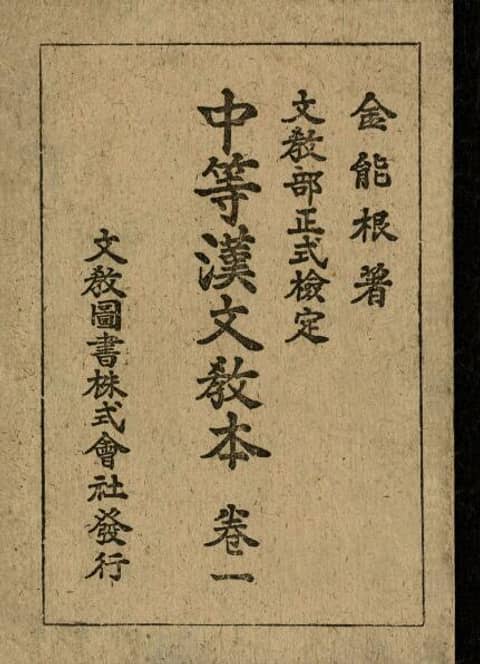 金能根著
文教部正式檢定
中等漢文教本 卷一
文教圖書株式會社發行